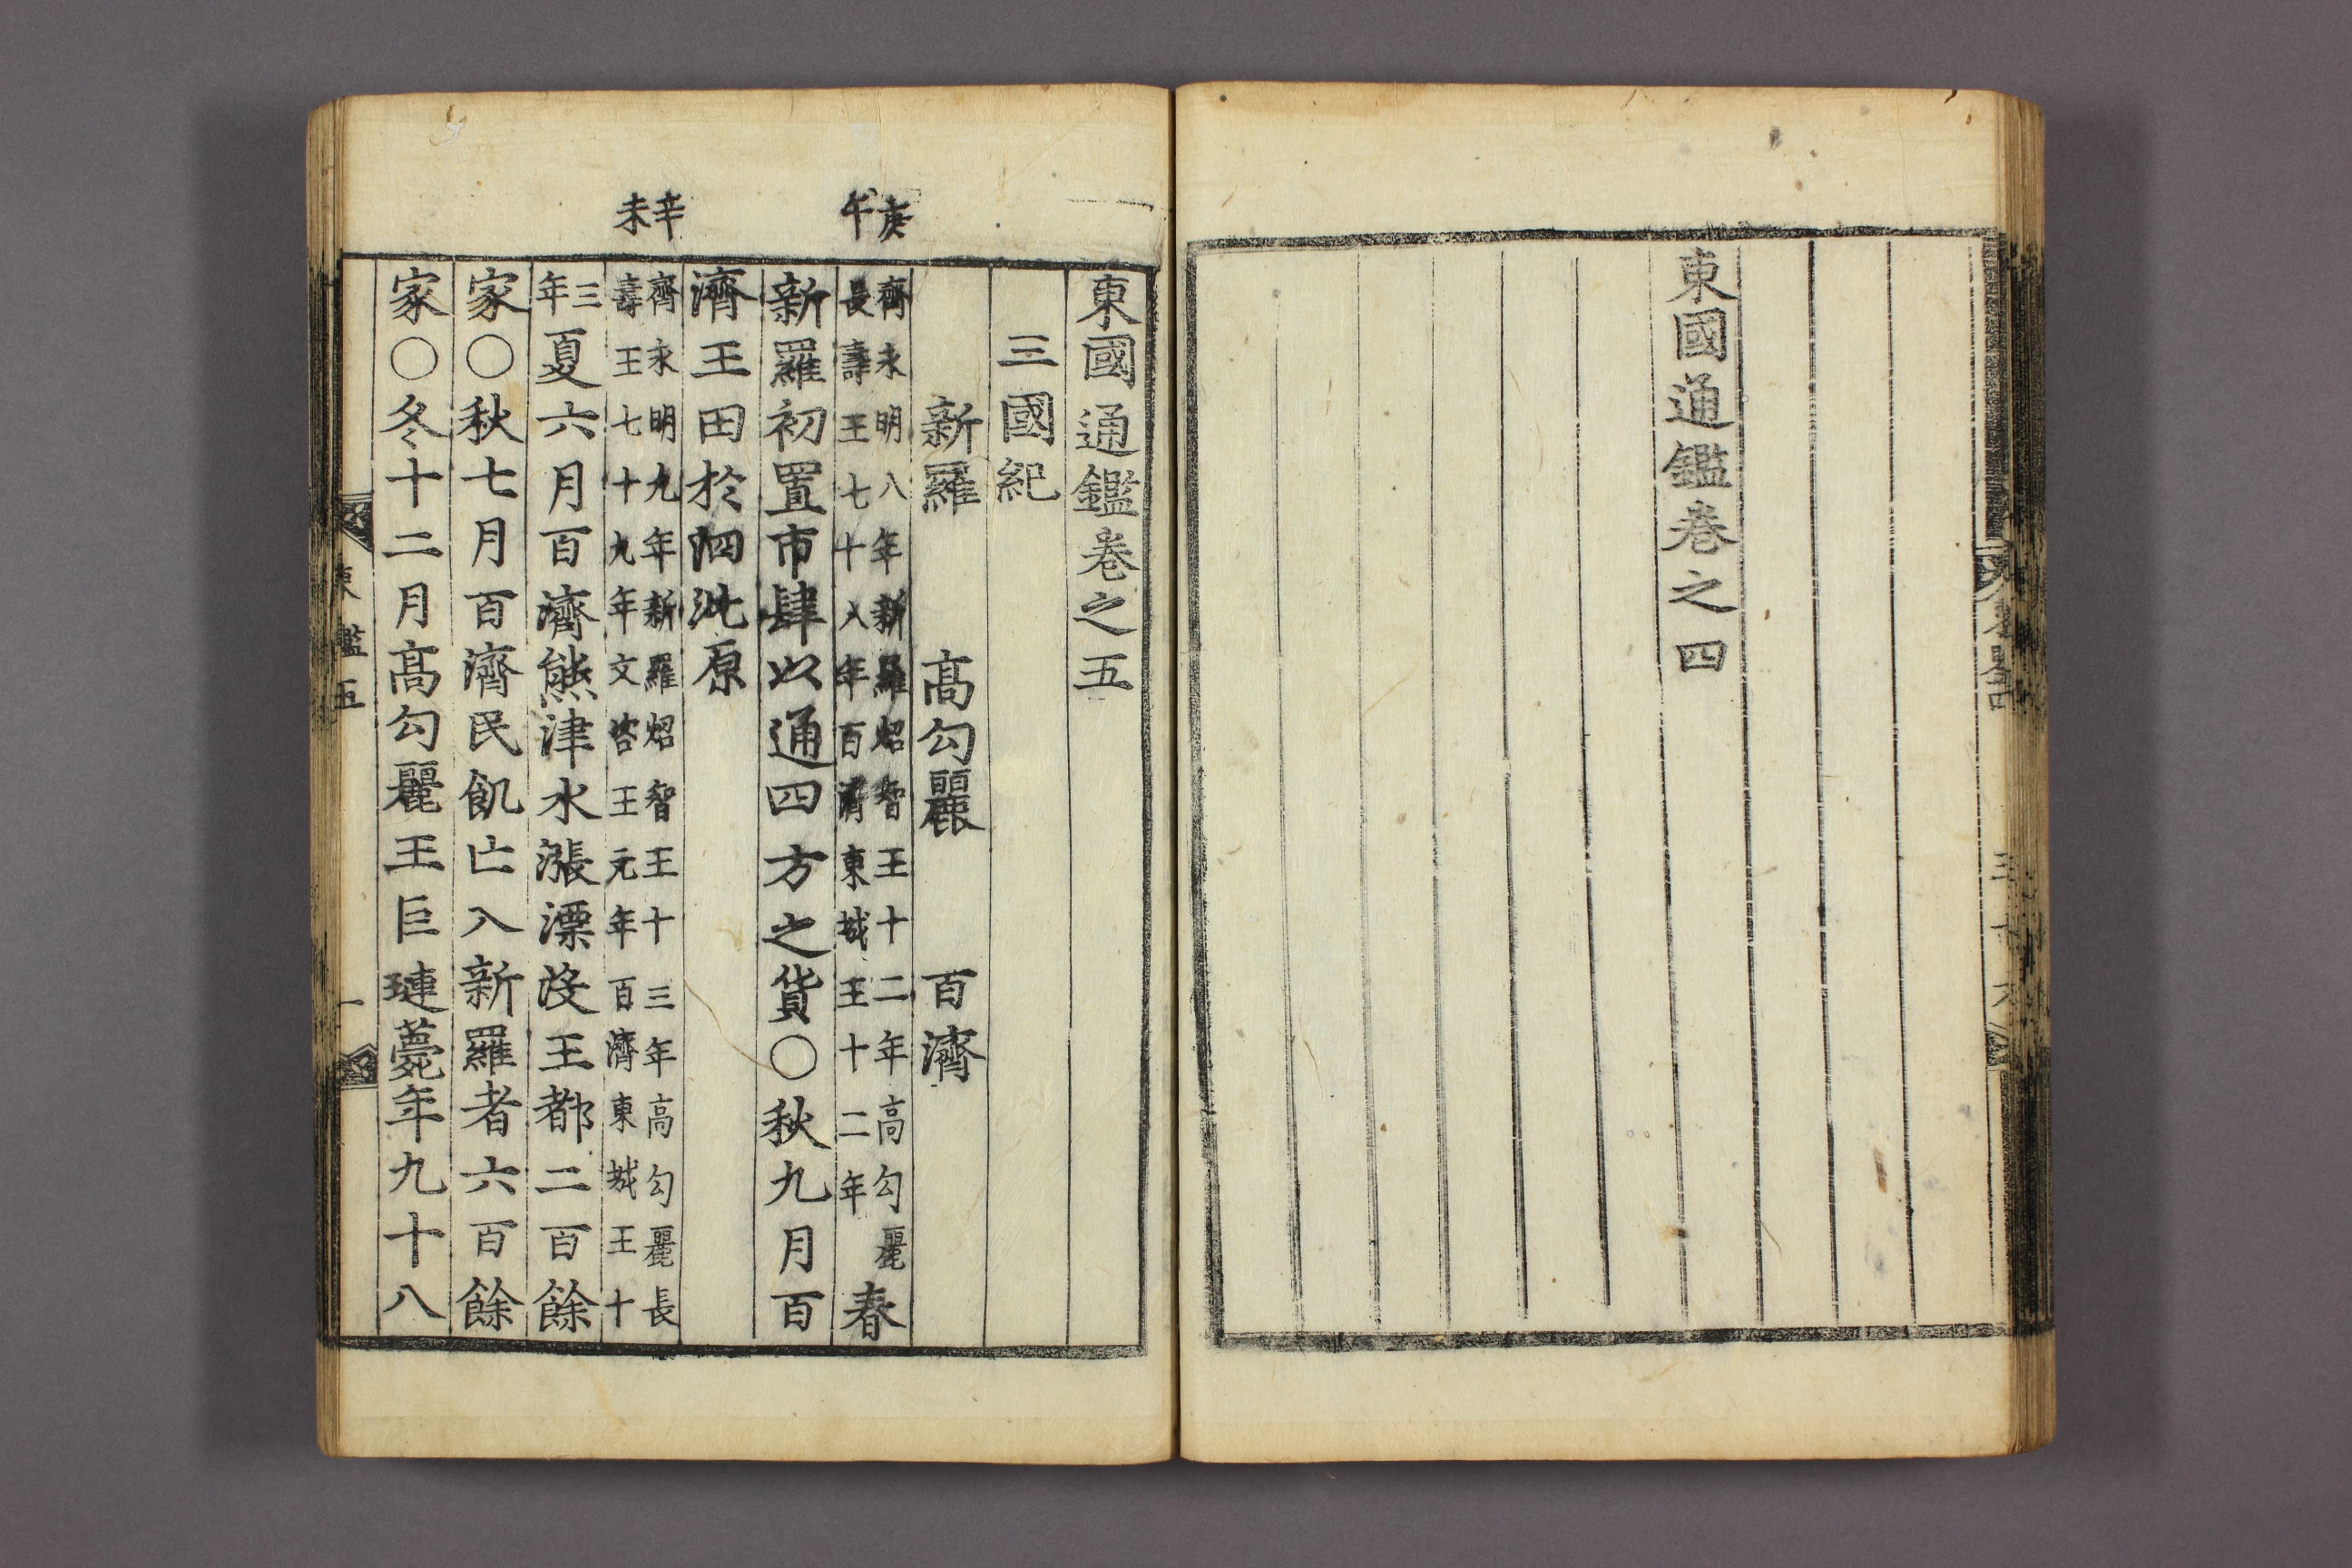 東國通鑑卷之四
東國通鑑卷之五
三國紀
新羅 高勾麗 百濟
庚午
齊永明八年新羅炤智王十二年高勾麗
長壽王七十八年百濟東城王十二年
春
新羅初置市肆以通四方之貨○秋九月百
濟王田於泗沘原
辛未
齊永明九年新羅炤智王十三年高勾麗長
壽王七十九年文咨王元年百濟東城王十
三年
夏六月百濟熊津水漲漂沒王都二百餘
家○秋七月百濟民飢亡入新羅者六百餘
家○冬十二月高勾麗王巨璉薨年九十八
東鑑五
一